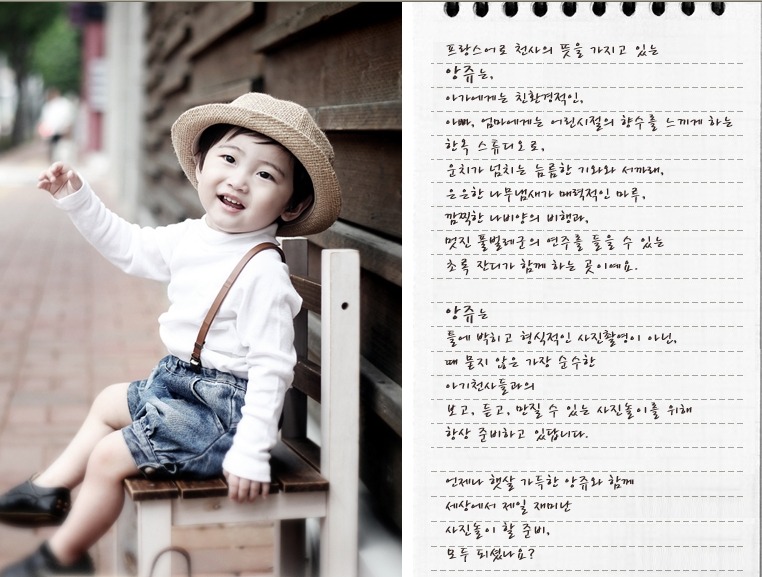 프랑스어로 천사의 뜻을 가지고 있는
앙쥬는,
아가에게는 친환경적인,
아빠, 엄마에게는 어린시절의 향수를 느끼게 하는
한옥 스튜디오로,
운치가 넘치는 늠름한 기와와 서까래,
은은한 나무냄새가 매력적인 마루,
깜찍한 나비양의 비행과,
멋진 풀벌레군의 연주를 들을 수 있는
초록 잔디가 함께 하는 곳이예요.
앙쥬는
틀에 박히고 형식적인 사진촬영이 아닌,
때 묻지 않은 가장 순수한
아기천사들과의
보고, 듣고, 만질 수 있는 사진놀이를 위해
항상 준비하고 있답니다.
언제나 햇살 가득한 앙쥬와 함께
세상에서 제일 재미난
사진놀이 할 준비,
모두 되셨나요?